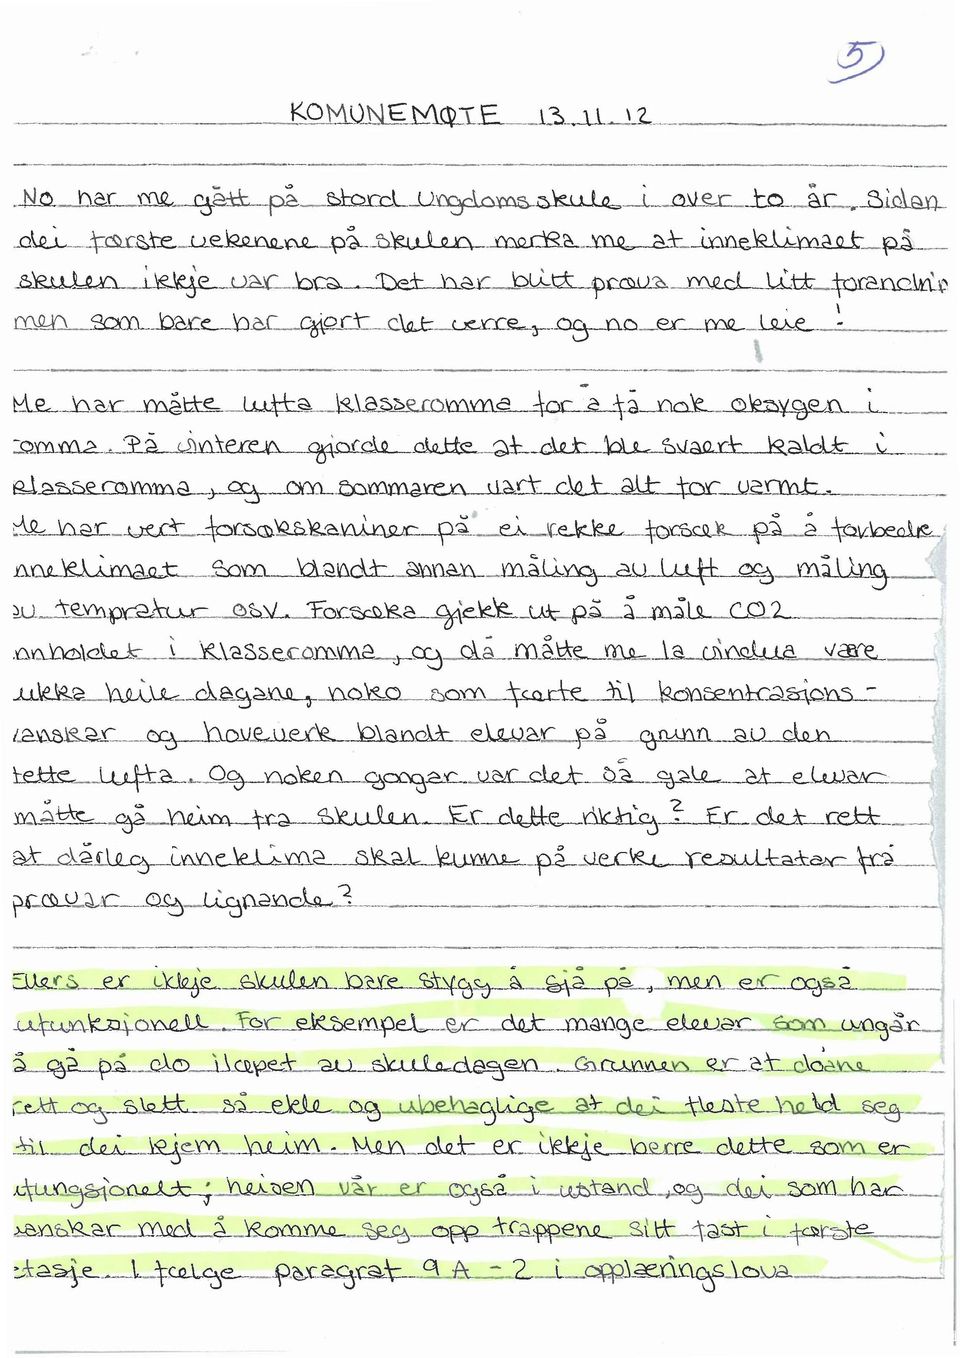 5)
KOMUNEMØTE 13.11.12
No har me gått på stord Ungdomsskule i over to år. Sidan
dei første vekenene på skulen merka me at inneklimaet på
skulen ikkje var bra. Det har blitt prøva med litt forandrin
men som bare har gjort det verre, og no er me leie!
Me har måtte lufta klasseromma for å få nok oksygen i
romma. På vinteren gjorde dette at det ble svært kaldt i
klasseromma, og om sommaren vart det alt for varmt.
Me har vert forsøkskaniner på ei rekke forsøk på å forbedre
nneklimaet som blandt annan måling av luft og måling
av tempratur osv. Forsøka gjekk ut på å måle CO2
nnholdet i klasseromma, og då måtte me la vindua være
ukka heile dagane, noko som førte til konsentrasjons-
vanskar og hoveverk blandt elevar på grunn av den
tette lufta. Og noken gongar var det så gale at elevar
måtte gå heim fra skulen. Er dette riktig? Er det rett
at dårleg inneklima skal kunne på verke resultatar frå
prøvar og lignande?
Ellers er ikkje skulen bare stygg å sjå på, men er også
ufunksjonell. For eksempel er det mange elevar som ungår
å gå på do iløpet av skuledagen. Grunnen er at doane
rett og slett så ekle og ubehaglige at dei fleste held seg
til dei kjem heim. Men det er ikkje berre dette som er
ufungsjonelt; heisen vår er også i ustand, og dei som har
vanskar med å komme seg opp trappene sitt fast i første
etasje. I følge paragraf 9A-2 i opplæringslova